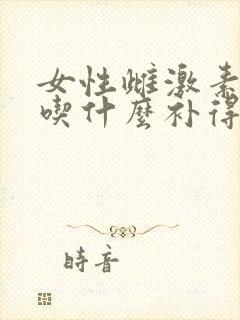 女性雌激素
喫什麼补得
時音